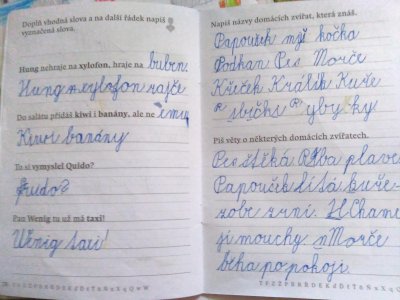 Doplň vhodná slova a na další řádek napiš
vyznačená slova.
Hung nehraje na xylofon, hraje na buben.
Hung xylofon rajče
Do salátu přidáš kiwi i banány, ale ne
Kiwi banány
Tu si vymyslel Quido?
Pan Wenig tu už má taxi!
Wenig taxi!
Napiš názvy domácích zvířat, která znáš.
Papoušek myš kočka
Potkan Pes Morče
Křeček Králík Kuře
rybičky
Piš věty o některých domácích zvířatech.
Pes štěká Riba plave
Papoušek lítá kuře
zobe zrní.
jí mouchy Morče
běha po pokoji.